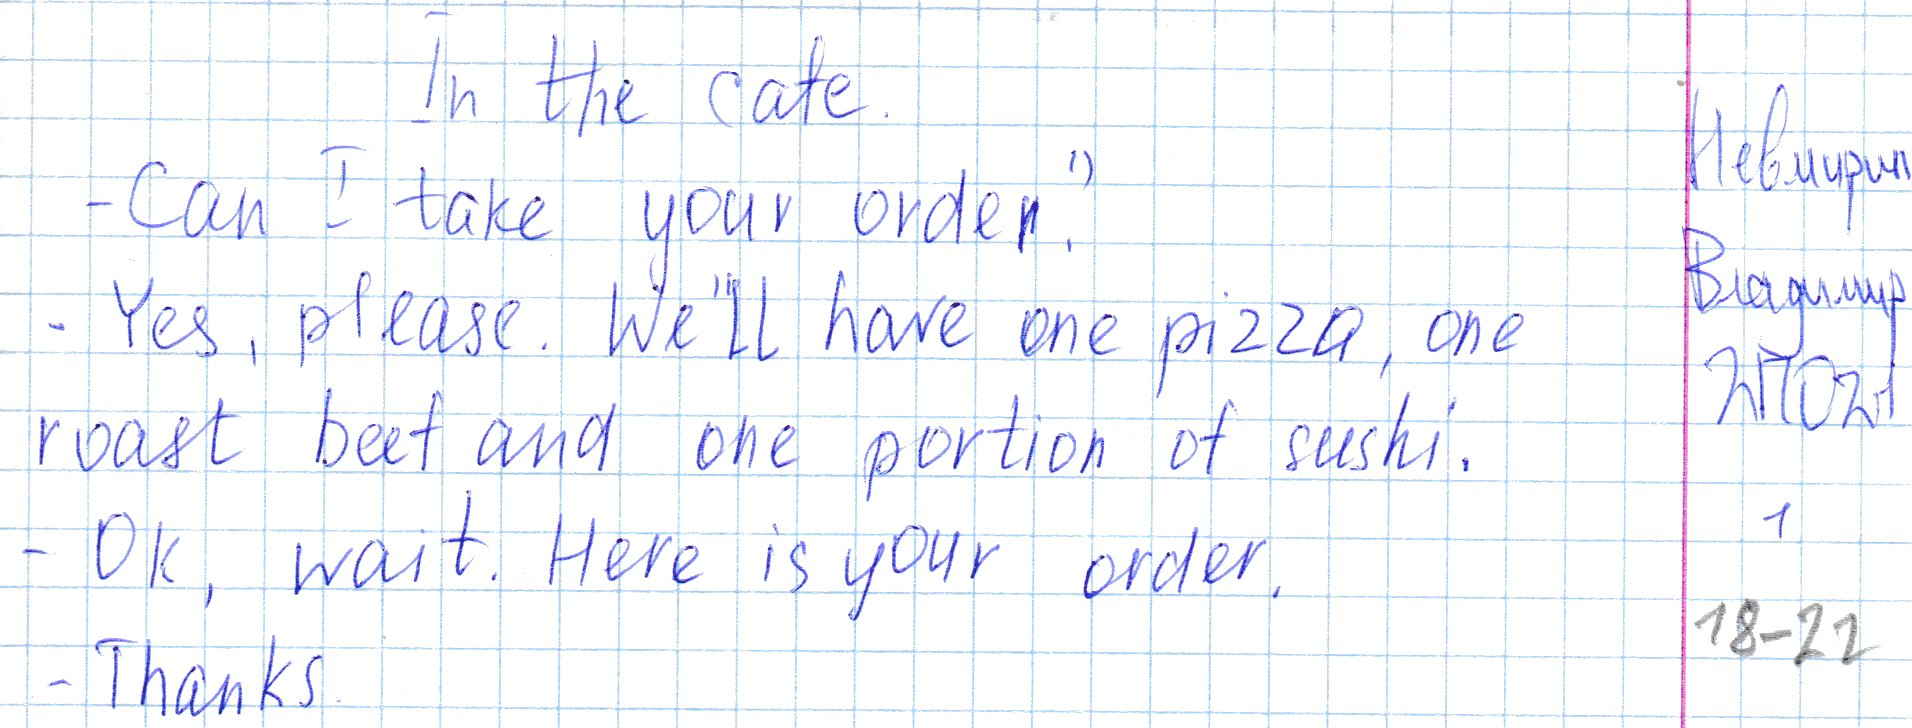 In the cafe.
- Can I take your order?
- Yes, please. We'll have one pizza, one
roast beef and one portion of sushi.
- Ok, wait. Here is your order.
- Thanks.
Владимир
2ПО21
1
18-22